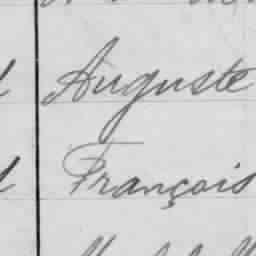 Auguste
François